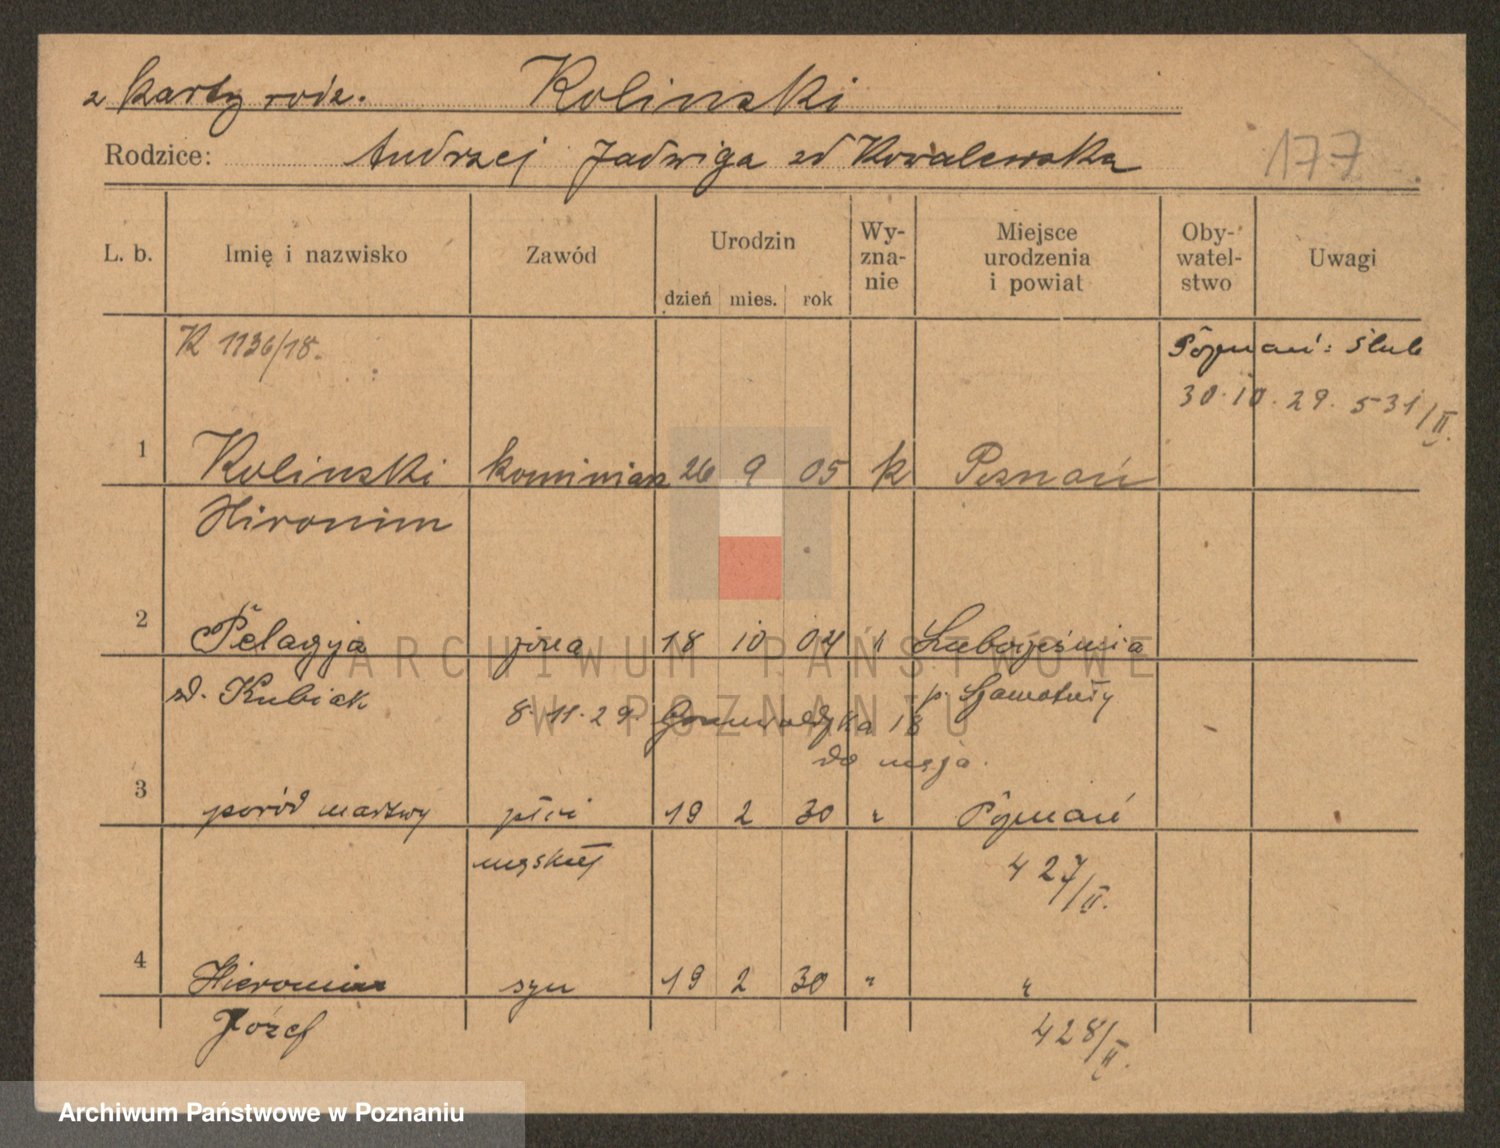 z karty rodz. Kolinski
Rodzice: Andrzej Jadwiga zd Kowalewska
177
L. b. Imię i nazwisko Zawód Urodzin dzień mies. rok Wy-zna-nie Miejsce urodzenia i powiat Oby-watel-stwo Uwagi
K 1136/18.
Poznań: Ślub
30.10.29. 531/II.
1 Kolinski kominiarz 26 9 05 k Poznań
Hironim
2 Pelagja żona 18 10 04 " Lubosieśnia
zd. Kubiak p. Szamotuły
8.11.29. Grunwaldzka 18
do męża.
3 poród martwy płci 19 2 30 " Poznań
męskiej 427/II.
4 Hieronim syn 19 2 30 " "
Józef 428/II.
ARCHIWUM PAŃSTWOWE
W POZNANIU
Archiwum Państwowe w Poznaniu